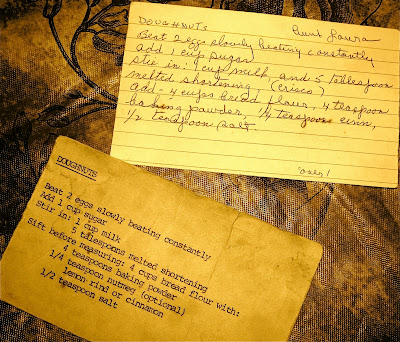 DOUGHNUTS Aunt Laura
Beat 2 eggs slowly beating constantly
add 1 cup sugar
stir in: 1 cup milk, and 5 tablespoon
melted shortening (crisco)
add - 4 cups bread flour, 4 teaspoon
baking powder, 1/4 teaspoon cinn,
1/2 teaspoon salt.
DOUGHNUTS
Beat 2 eggs slowly beating constantly
Add 1 cup sugar
Stir in: 1 cup milk
5 tablespoons melted shortening
Sift before measuring: 4 cups bread flour with:
4 teaspoons baking powder
1/4 teaspoon nutmeg (optional)
lemon rind or cinnamon
1/2 teaspoon salt